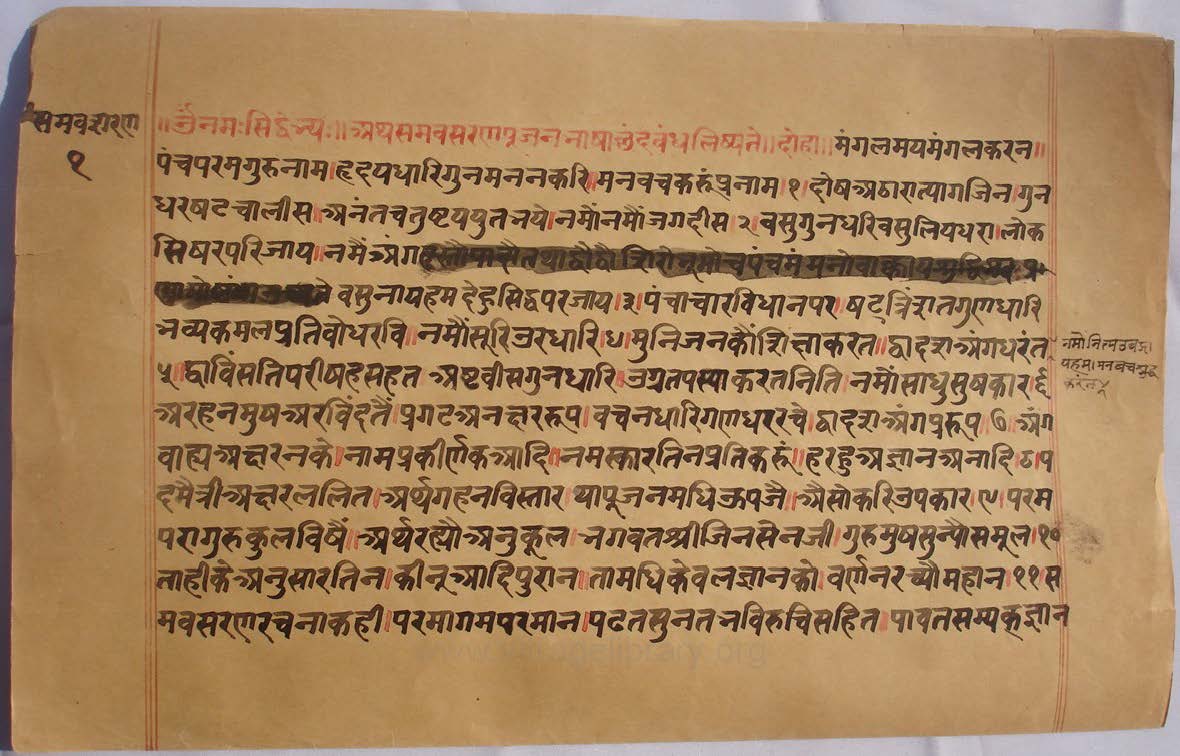 समवशरण
१
॥ ॐ नमः सिद्धेभ्यः ॥ अथ समवसरण पूजन भाषा छंद बंध लिष्यते ॥ दोहा ॥ मंगलमय मंगलकरन ॥
पंच परम गुरु नाम । हृदय धारि गुन मनन करि । मन वच करूं प्रनाम । १ । दोष अठारा त्याग जिन । गुन
धर षट चालीस । अनंत चतुष्टय युत भये । नमौं नमौं जगदीस । २ । वसु गुन धरि वसु लिय धरा । लोक
सिषर परि जाय । नमैं अंग
वसु नाय हम देहु सिद्ध पर जाय । ३ । पंचाचार विधान पर । षट त्रिंशत गुण धारि
भव्य कमल प्रतिवोध रवि । नमौं सूरि उर धारि । ४ । मुनि जन कौं शिक्षा करत । द्वादश अंग धरंत
नमो नित्म
मन वच सुद्ध
करंत ४
५ । द्वाविंसति परीषह सहत अष्टवीस गुन धारि । उग्र तपस्या करत निति । नमौं साधु सुषकार । ६
अरहन मुष अरविंद तैं । प्रगट अनक्षर रूप । वचन धारि गणधर रचै । द्वादश अंग प्ररूप । ७ । अंग
वाह्य अक्षरन के । नाम प्रकीर्णक आदि । नमस्कार तिन प्रति करूं । हरहु अज्ञान अनादि । ८ । प
द मैत्री अक्षर ललित । अर्थ गहन विस्तार । या पूजन मधि ऊपजै । औसो करि उपकार । ९ । परम
परा गुरु कुल विषैं । अर्थ रह्यौ अनुकूल । भगवत श्री जिनसेन जी । गुरु मुष सुन्यौ समूल । १०
ताही कै अनुसार तिन । कीनू आदि पुरान । ता मधि केवल ज्ञान को । वर्णन रच्यौ महान । ११ । स
मवसरण रचना कही । परमागम परमान । पढत सुनत भवि रुचि सहित । पावत सम्यक् ज्ञान